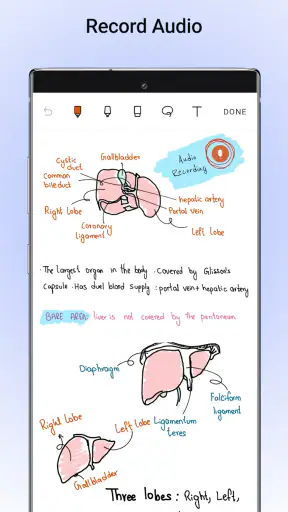 Record Audio
T DONE
Cystic duct
Gallbladder
Common bile duct
Audio Recording
hepatic artery
Portal vein
Right Lobe
Coronary ligament
Left lobe
· The largest organ in the body · Covered by Glisson's
Capsule · Has duel bland supply : portal vein + hepatic artery
BARE AREA: liver is not covered by the peritoneum
Diaphragm
Falciform ligament
Right lobe
Left lobe
Ligamentum teres
Gallbladder
Three lobes : Right, Left,